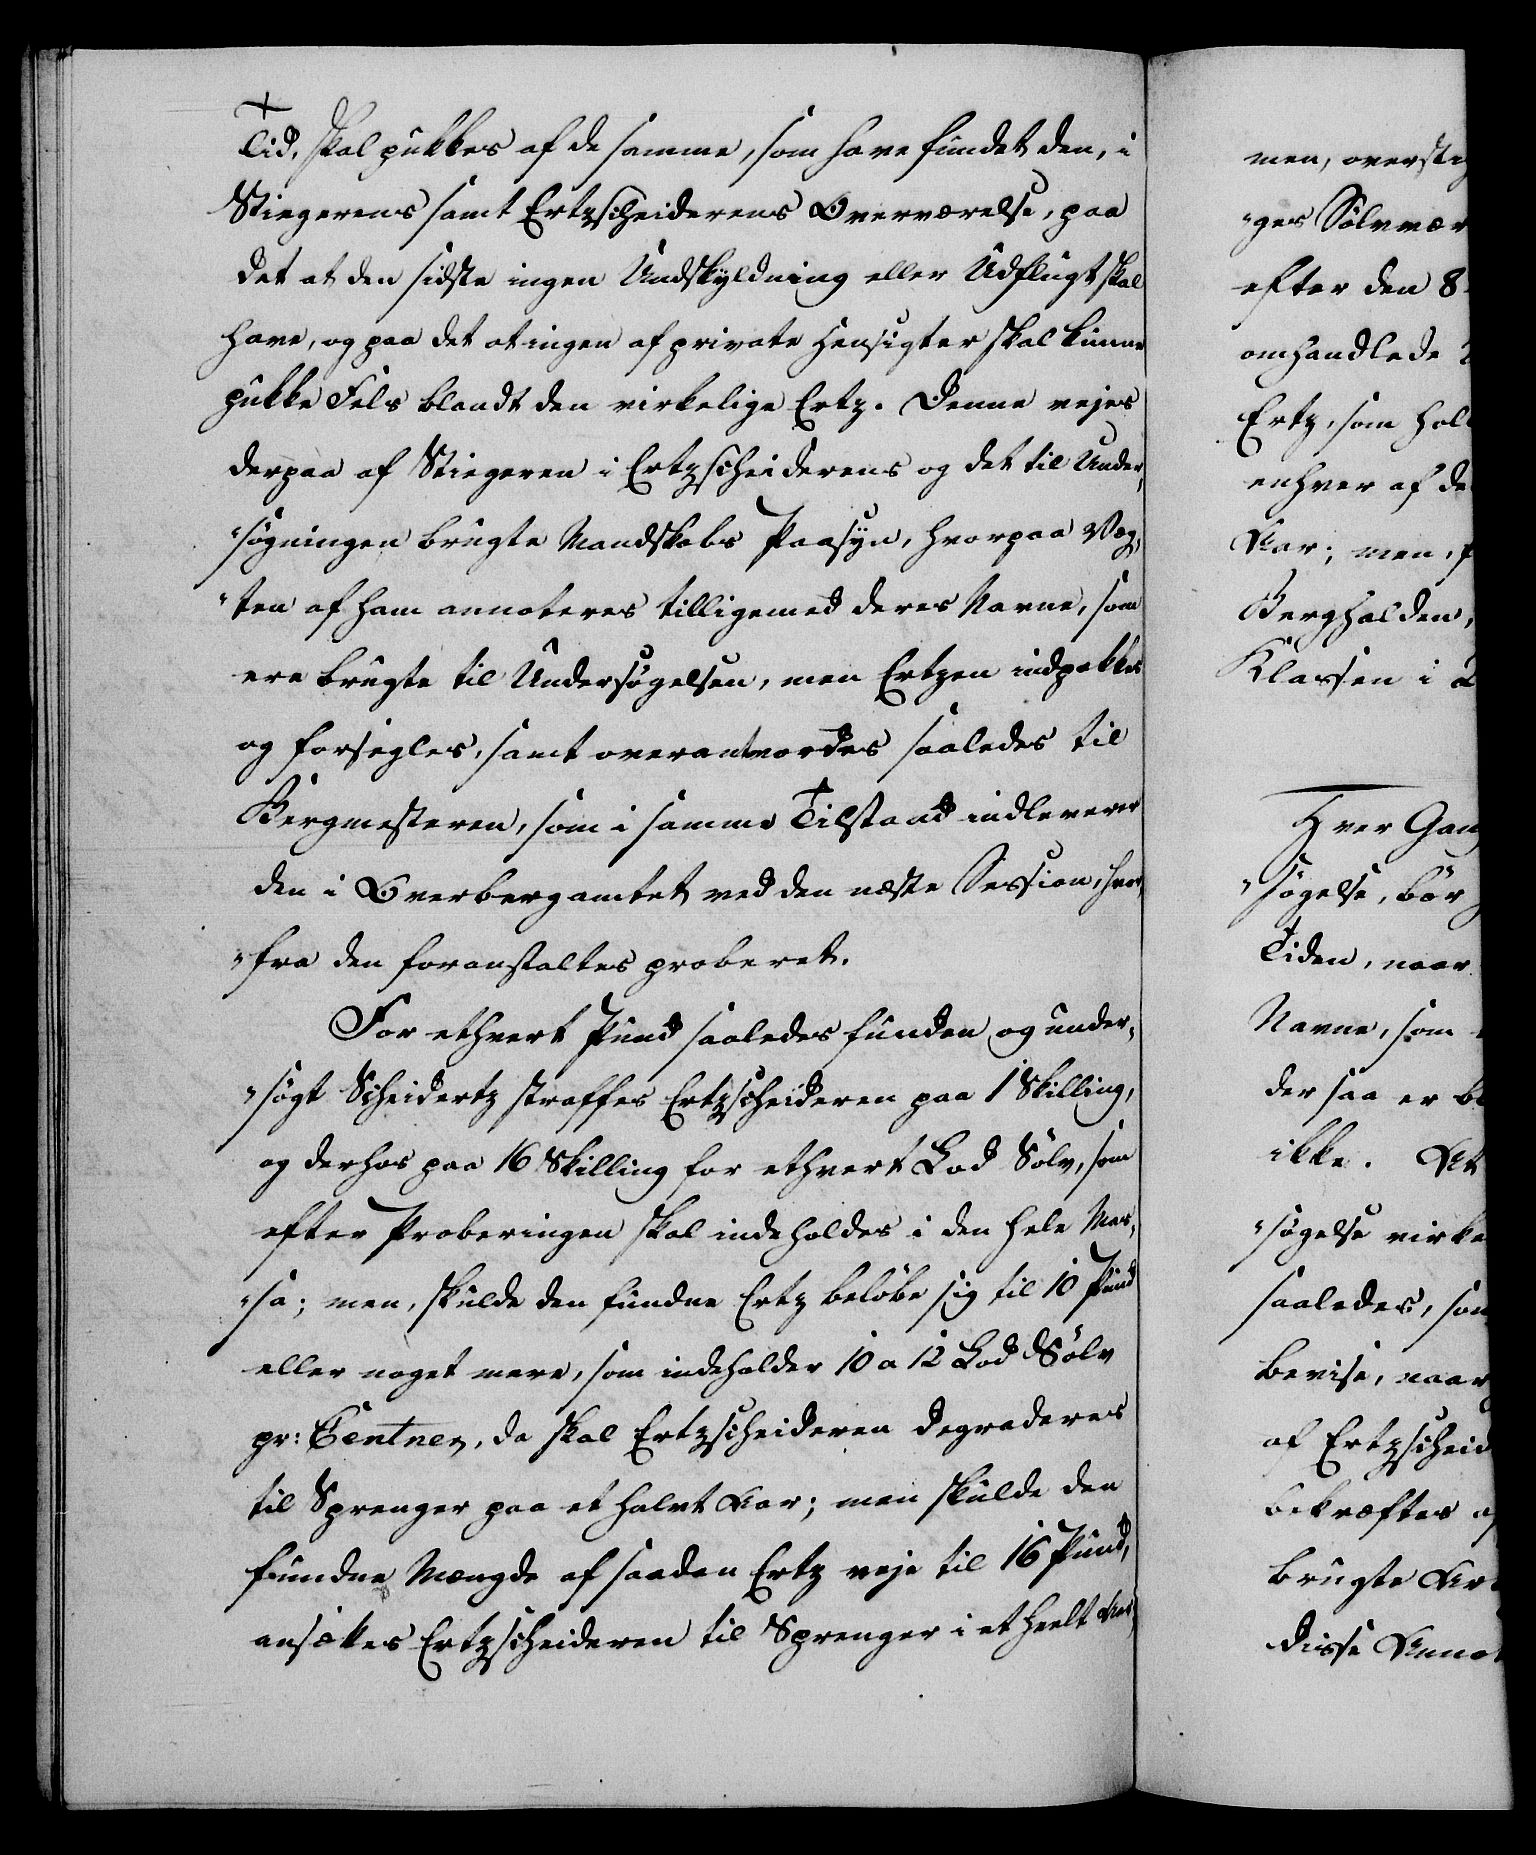 Tid, skal pukkes af de samme, som have fundet den, i
Stiegerens samt Ertzscheiderens Overværelse, paa
det at den sidste ingen Undskyldning eller Udflugt skal
have, og paa det at ingen af private Hensigter skal kunne
pukke Fels blandt den virkelige Ertz. Denne vejes
derpaa af Stiegeren i Ertzscheiderens og det til Under,
"søgningen brugte Mandskabs Paasyn, hvorpaa Væg,
"ten af ham annoteres tilligemed deres Navne, som
ere brugte til Undersøgelsen, men Ertzen indpakkes
og forsegles, samt overantvordes saaledes til
Bergmesteren, som i samme Tilstand indleverer
den i Overbergamtet ved den næste Session, hvor,
"fra den foranstaltes proberet.
For ethvert Pund saaledes funden og under,
"søgt Scheidertz straffes Ertzscheideren paa 1 Skilling,
og derhos paa 16 Skilling for ethvert Lod Sølv, som
efter Proberingen skal indeholdes i den hele Mas,
"sa; men, skulde den fundne Ertz beløbe sig til 10 Pund
eller noget mere, som indeholder 10 a 12 Lod Sølv
pr: Centner, da skal Ertzscheideren degraderes
til Sprenger paa et halvt Aar; men skulde den
fundne Mængde af saadan Ertz veje til 16 Pund,
ansættes Ertzscheideren til Sprenger i et heelt Aar,
men, overstig
"ges Sølvvær
efter den 8
omhandlede
Ertz, som hol
enhver af de
Aar; men,
Berghalden,
Klassen i 2
Hver Gang
"søgelse, bør
Tiden, naar
Navne, som
der saa er b
ikke. At
"søgelse virke
saaledes, som
bevise, naar
af Ertzscheid
bekræftes af
brugte Ar
disse Annot